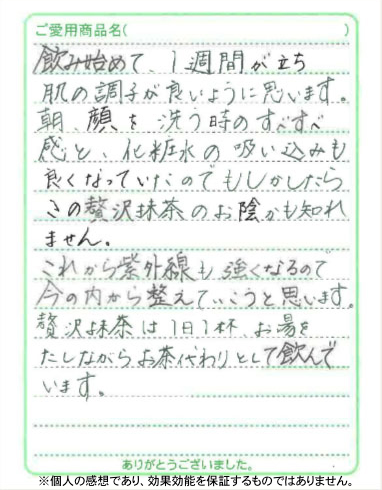 ご愛用商品名( )
飲み始めて、1週間が立ち
肌の調子が良いように思います。
朝、顔を洗う時のすべすべ
感と、化粧水の吸い込みも
良くなっていたのでもしかしたら
この贅沢抹茶のお陰かも知れ
ません。
これから紫外線も強くなるので
今の内から整えていこうと思います。
贅沢抹茶は1日1杯、お湯を
たしながらお茶代わりとして飲んで
います。
ありがとうございました。
※個人の感想であり、効果効能を保証するものではありません。